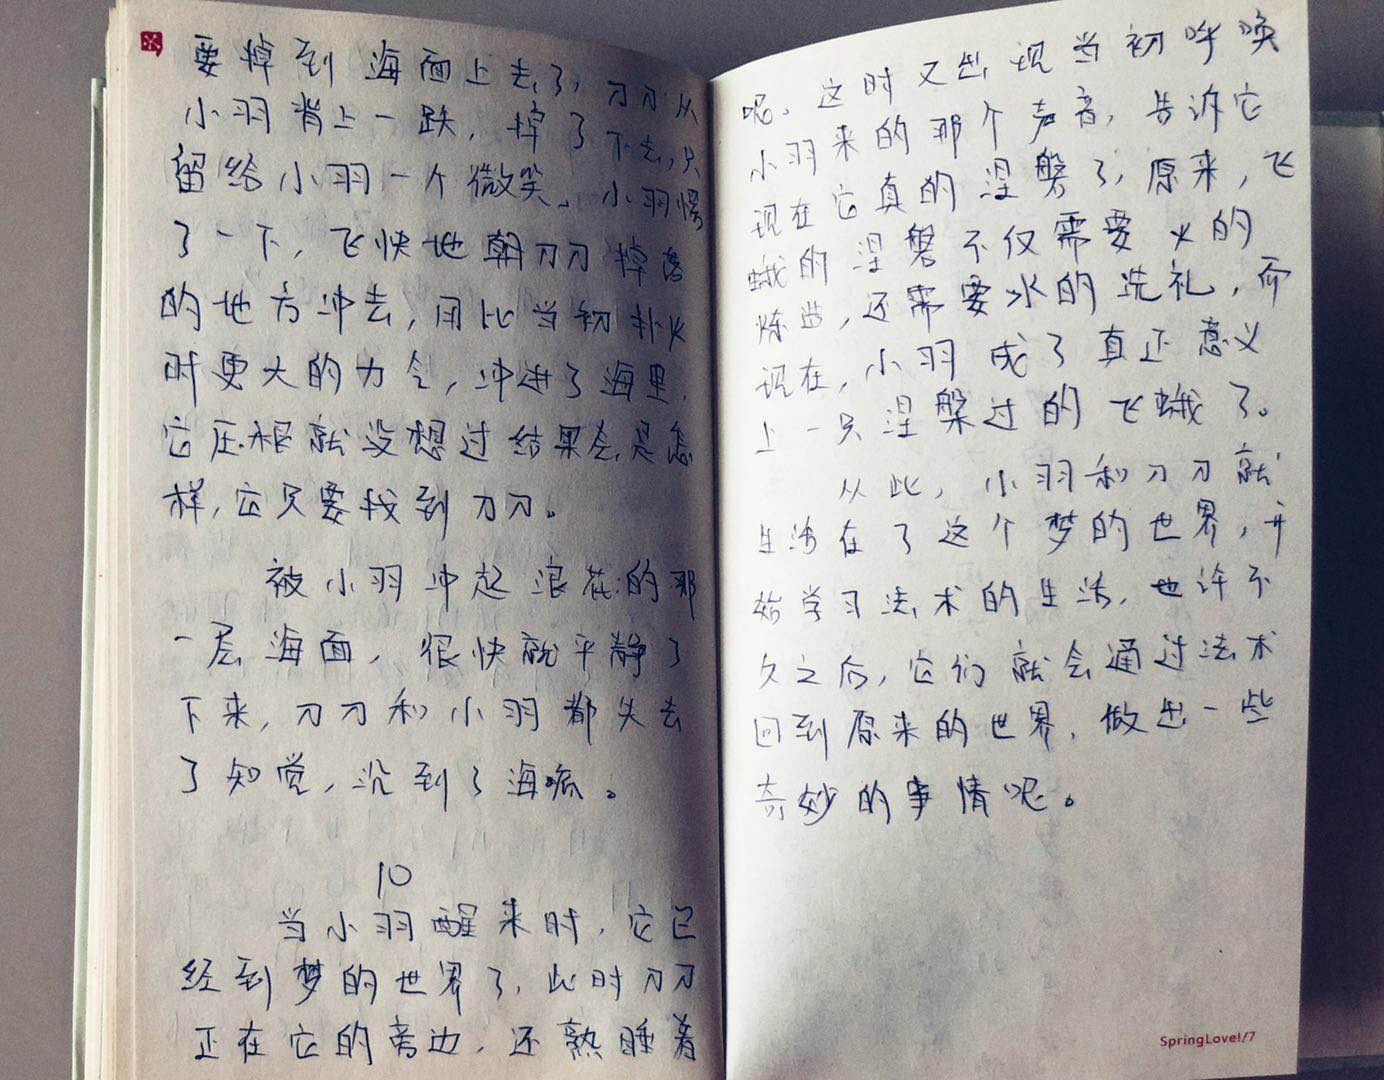 要掉到海面上去了，刀刀从
小羽背上一跌，掉了下去，只
留给小羽一个微笑。小羽愣
了一下，飞快地朝刀刀掉落
的地方冲去，用比当初扑火
时更大的力气，冲进了海里，
它压根就没想过结果会是怎
样，它只要找到刀刀。
被小羽冲起浪花的那
一层海面，很快就平静了
下来，刀刀和小羽都失去
了知觉，沉到了海底。
10
当小羽醒来时，它已
经到梦的世界了，此时刀刀
正在它的旁边，还熟睡着
呢。这时又出现当初呼唤
小羽来的那个声音，告诉它
现在它真的涅磐了，原来，飞
蛾的涅磐不仅需要火的
炼造，还需要水的洗礼，而
现在，小羽成了真正意义
上一只涅槃过的飞蛾了。
从此，小羽和刀刀就
生活在了这个梦的世界，开
始学习法术的生活，也许不
久之后，它们就会通过法术
回到原来的世界，做出一些
奇妙的事情呢。
SpringLove!/7